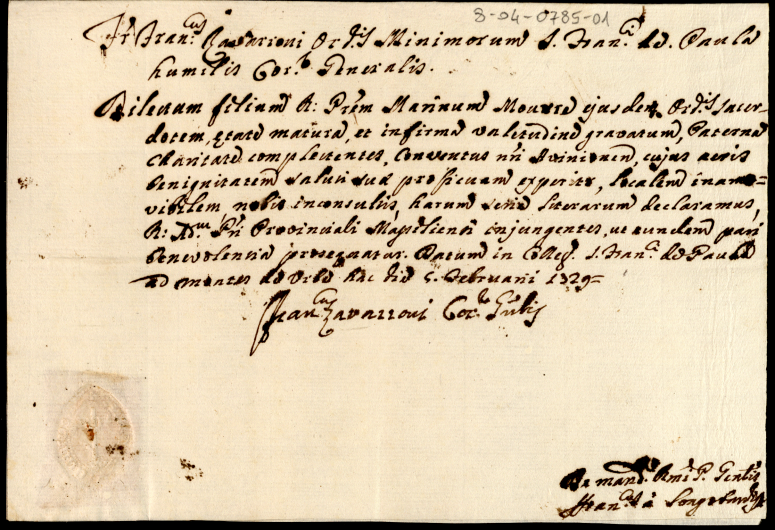 8-04-0785-01
Fr Fran.cus Zavarroni Ord.s Minimorum S. Fran.ci de Paula
humilis Cor.r Generalis.
Dilectum filium R: Prem Marinum Mouure ejusdem Ord.s sacer-
dotem, ętate matura, et infirma valetudine gravatum, Paterna
Charitate complectentes, Conventus nri Avinionen, cujus aeris
benignitatem saluti suę proficuam experitr, localem inamo-
vibilem, nobis inconsultis, harum serie literarum declaramus,
R: Adm. Pri Provinciali Massiliensi injungentes, ut eundem pari
benevolentia prosequatur. Datum in Colleg. S. Fran.ci de Paula
ad montes de Urbe hac die 5. Februarii 1729=
Fran.cus Zavarroni Cor.r Gnlis
De mand. Rmi P. Gentis
ffran.cus à Longobardis